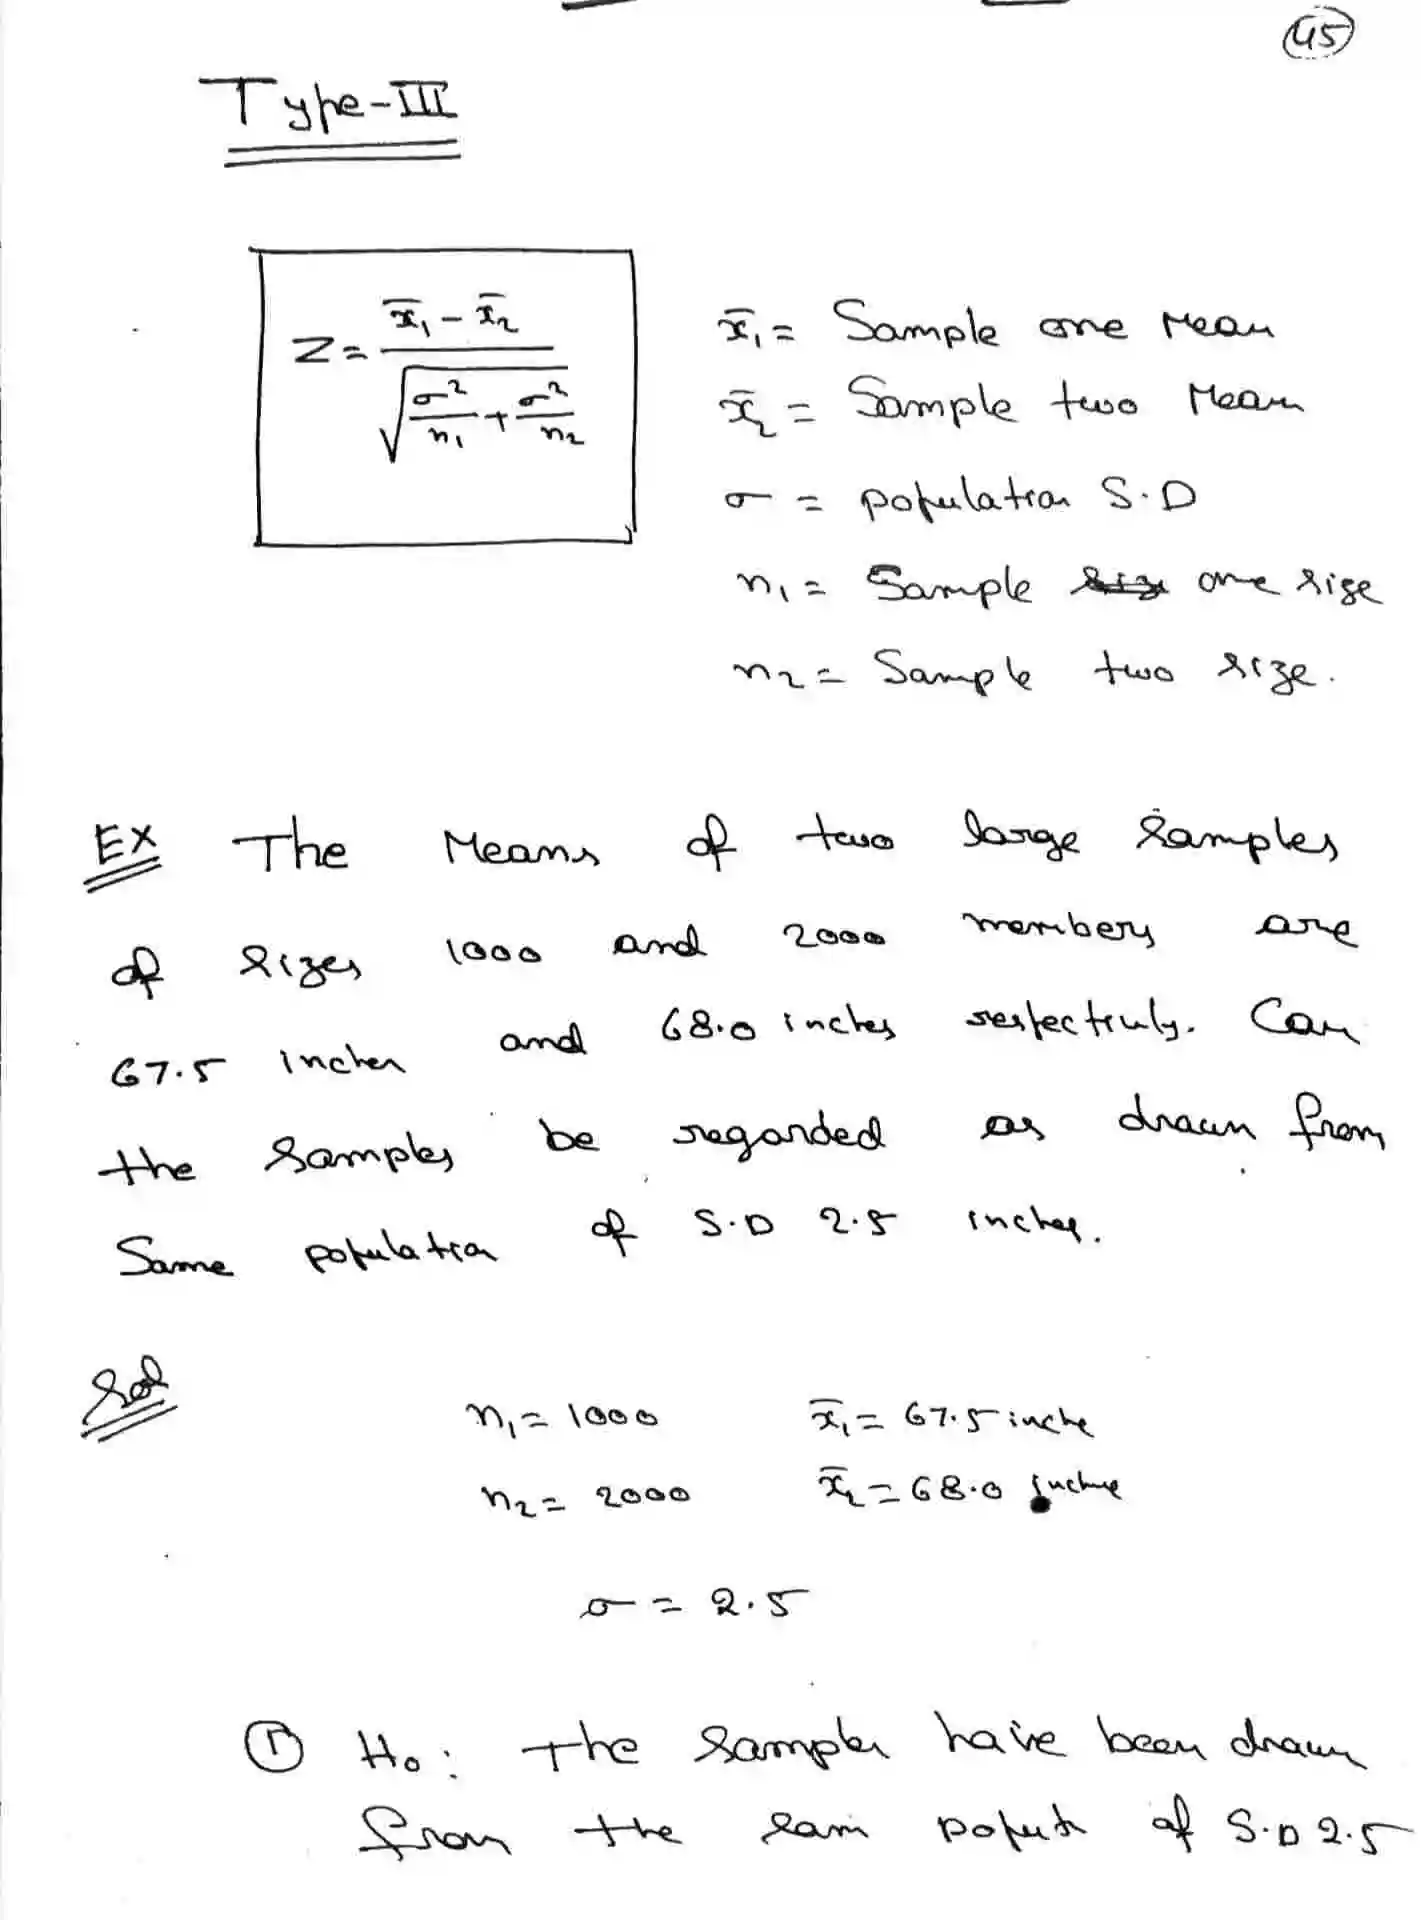 45
Type-III
Z = (x̄₁ - x̄₂) / √(σ²/n₁ + σ²/n₂)
x̄₁ = Sample one Mean
x̄₂ = Sample two Mean
σ = population S.D
n₁ = Sample one size
n₂ = Sample two size.
EX The Means of two large samples
of sizes 1000 and 2000 members are
67.5 inches and 68.0 inches respectively. Can
the samples be regarded as drawn from
Same population of S.D 2.5 inches.
Sol
n₁ = 1000 x̄₁ = 67.5 inche
n₂ = 2000 x̄₂ = 68.0 inche
σ = 2.5
① H₀: The samples have been drawn
from the sam of S.D 2.5